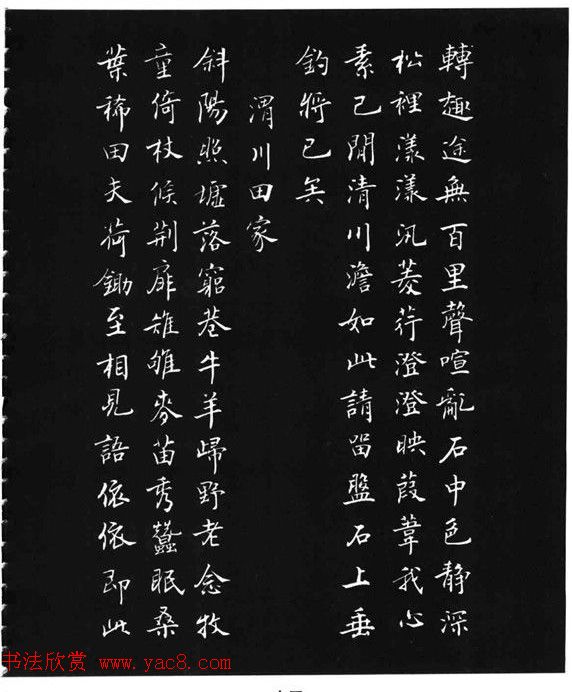 轉趣途無百里聲喧亂石中色靜深
松裡漾漾汎菱荇澄澄映葭葦我心
素已閒清川澹如此請留盤石上垂
釣將已矣
渭川田家
斜陽照墟落窮巷牛羊歸野老念牧
童倚杖候荆扉雉雊麥苗秀蠶眠桑
葉稀田夫荷鋤至相見語依依即此
书法欣赏 www.yac8.com